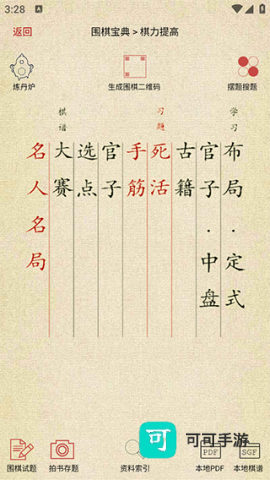 3:28
81
返回
围棋宝典 > 棋力提高
炼丹炉
生成围棋二维码
摆题搜题
学习
习题
棋谱
布局·定式
官子·中盘
古籍
死活
手筋
官子
选点
大赛
名人名局
可
可可手游
PDF
SGF
围棋试题
拍书存题
资料索引
本地PDF
本地棋谱